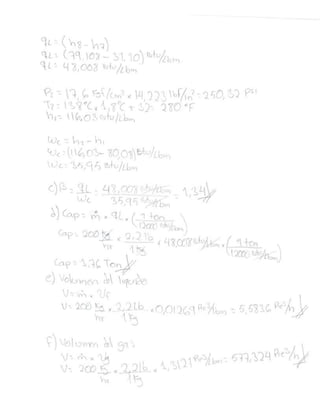 qL = (h8 - h7)
qL = (79,108 - 31,10) Btu/Lbm
qL = 48,008 Btu/Lbm
P2 = 17,6 Kgf/cm² * 14,223 lbf/in² = 250,32 PSI
T2 = 138°C * 1,8°C + 32 = 280 °F
h2 = 116,03 Btu/Lbm
Wc = h2 - h1
Wc = (116,03 - 80,08) Btu/Lbm
Wc = 35,95 Btu/Lbm
c) β = qL / Wc = 48,008 Btu/Lbm / 35,95 Btu/Lbm = 1,34
d) Cap = ṁ * qL * (1 ton / 12000 Btu/hr)
Cap = 200 Kg/hr * 2,2 lb / 1 Kg * 48,008 Btu/Lbm * (1 ton / 12000 Btu/hr)
Cap = 1,76 Ton
e) Volumen del liquido
V = ṁ * Vf
V = 200 Kg/hr * 2,2 lb / 1 Kg * 0,01269 Pie3/Lbm = 5,5836 Pie3/h
f) Volumen del gas:
V = ṁ * Vg
V = 200 Kg/hr * 2,2 lb / 1 Kg * 1,3121 Pie3/Lbm = 577,324 Pie3/h